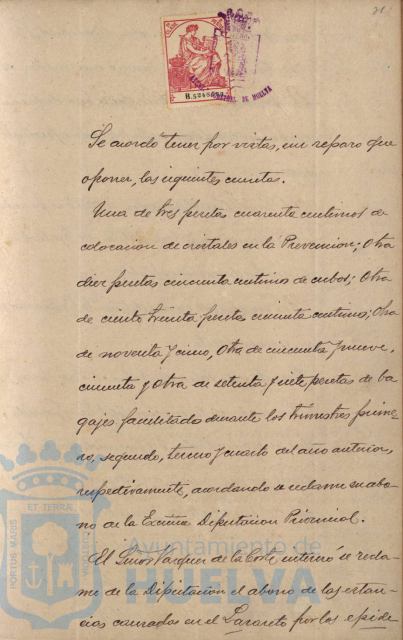 21
B.5246557
Se acordó tener por vistas, sin reparo que
oponer, las siguientes cuentas.
Una de tres pesetas cuarenta centimos de
colocacion de cristales en la Prevencion; Otra
diez pesetas cincuenta centimos de cubos; Otra
de ciento treinta pesetas cincuenta centimos; Otra
de noventa y cinco, Otra de cincuenta y nueve,
cincuenta y Otra de setenta y siete pesetas de ba-
gajes facilitados durante los trimestres prime-
ro, segundo, tercero y cuarto del año anterior,
respectivamente, acordando se reclame su abo-
no de la Excma Diputacion Provincial.
El Señor Vazquez de la Corte interesó se recla-
me de la Diputacion el abono de las estan-
cias causadas en el Lazareto por los epide
PORTUS MARIS
ET TERRÆ
Ayuntamiento de
HUELVA